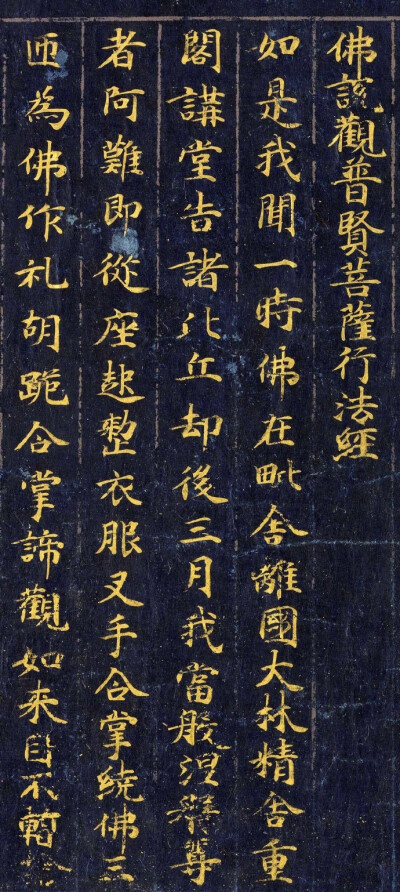 佛說觀普賢菩薩行法經
如是我聞一時佛在毗舍離國大林精舍重
閣講堂告諸比丘却後三月我當般涅槃尊
者阿難即從座起整衣服叉手合掌繞佛三
匝為佛作礼胡跪合掌諦觀如来目不暫捨